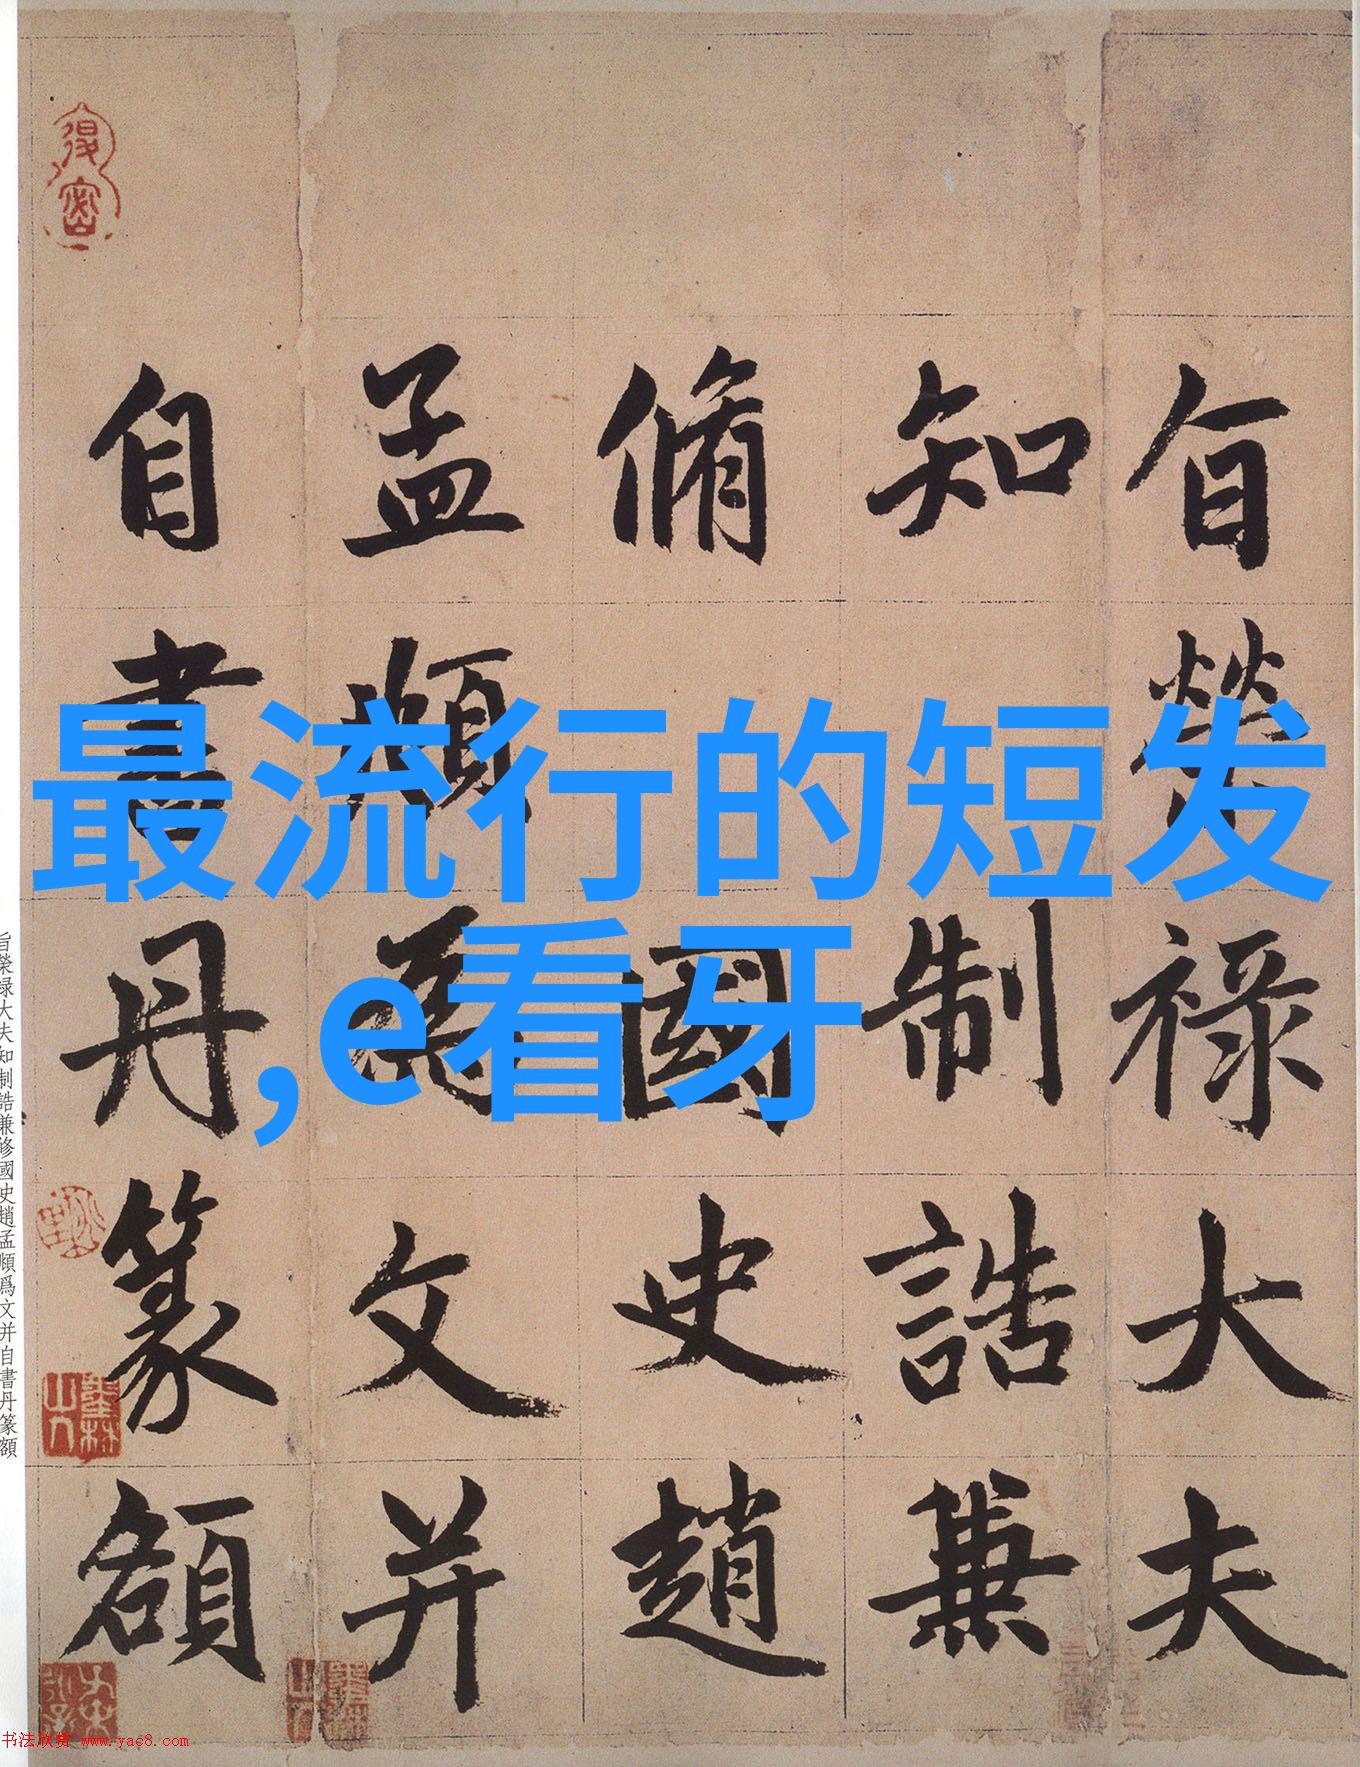 最流行的短发
,e看牙
旨榮祿大夫
知制誥兼
脩國史趙
孟頫為文并
自書丹篆額
旨榮禄大夫知制誥兼修國史趙孟頫爲文并自書丹篆額
书法欣赏 www.yac8.com